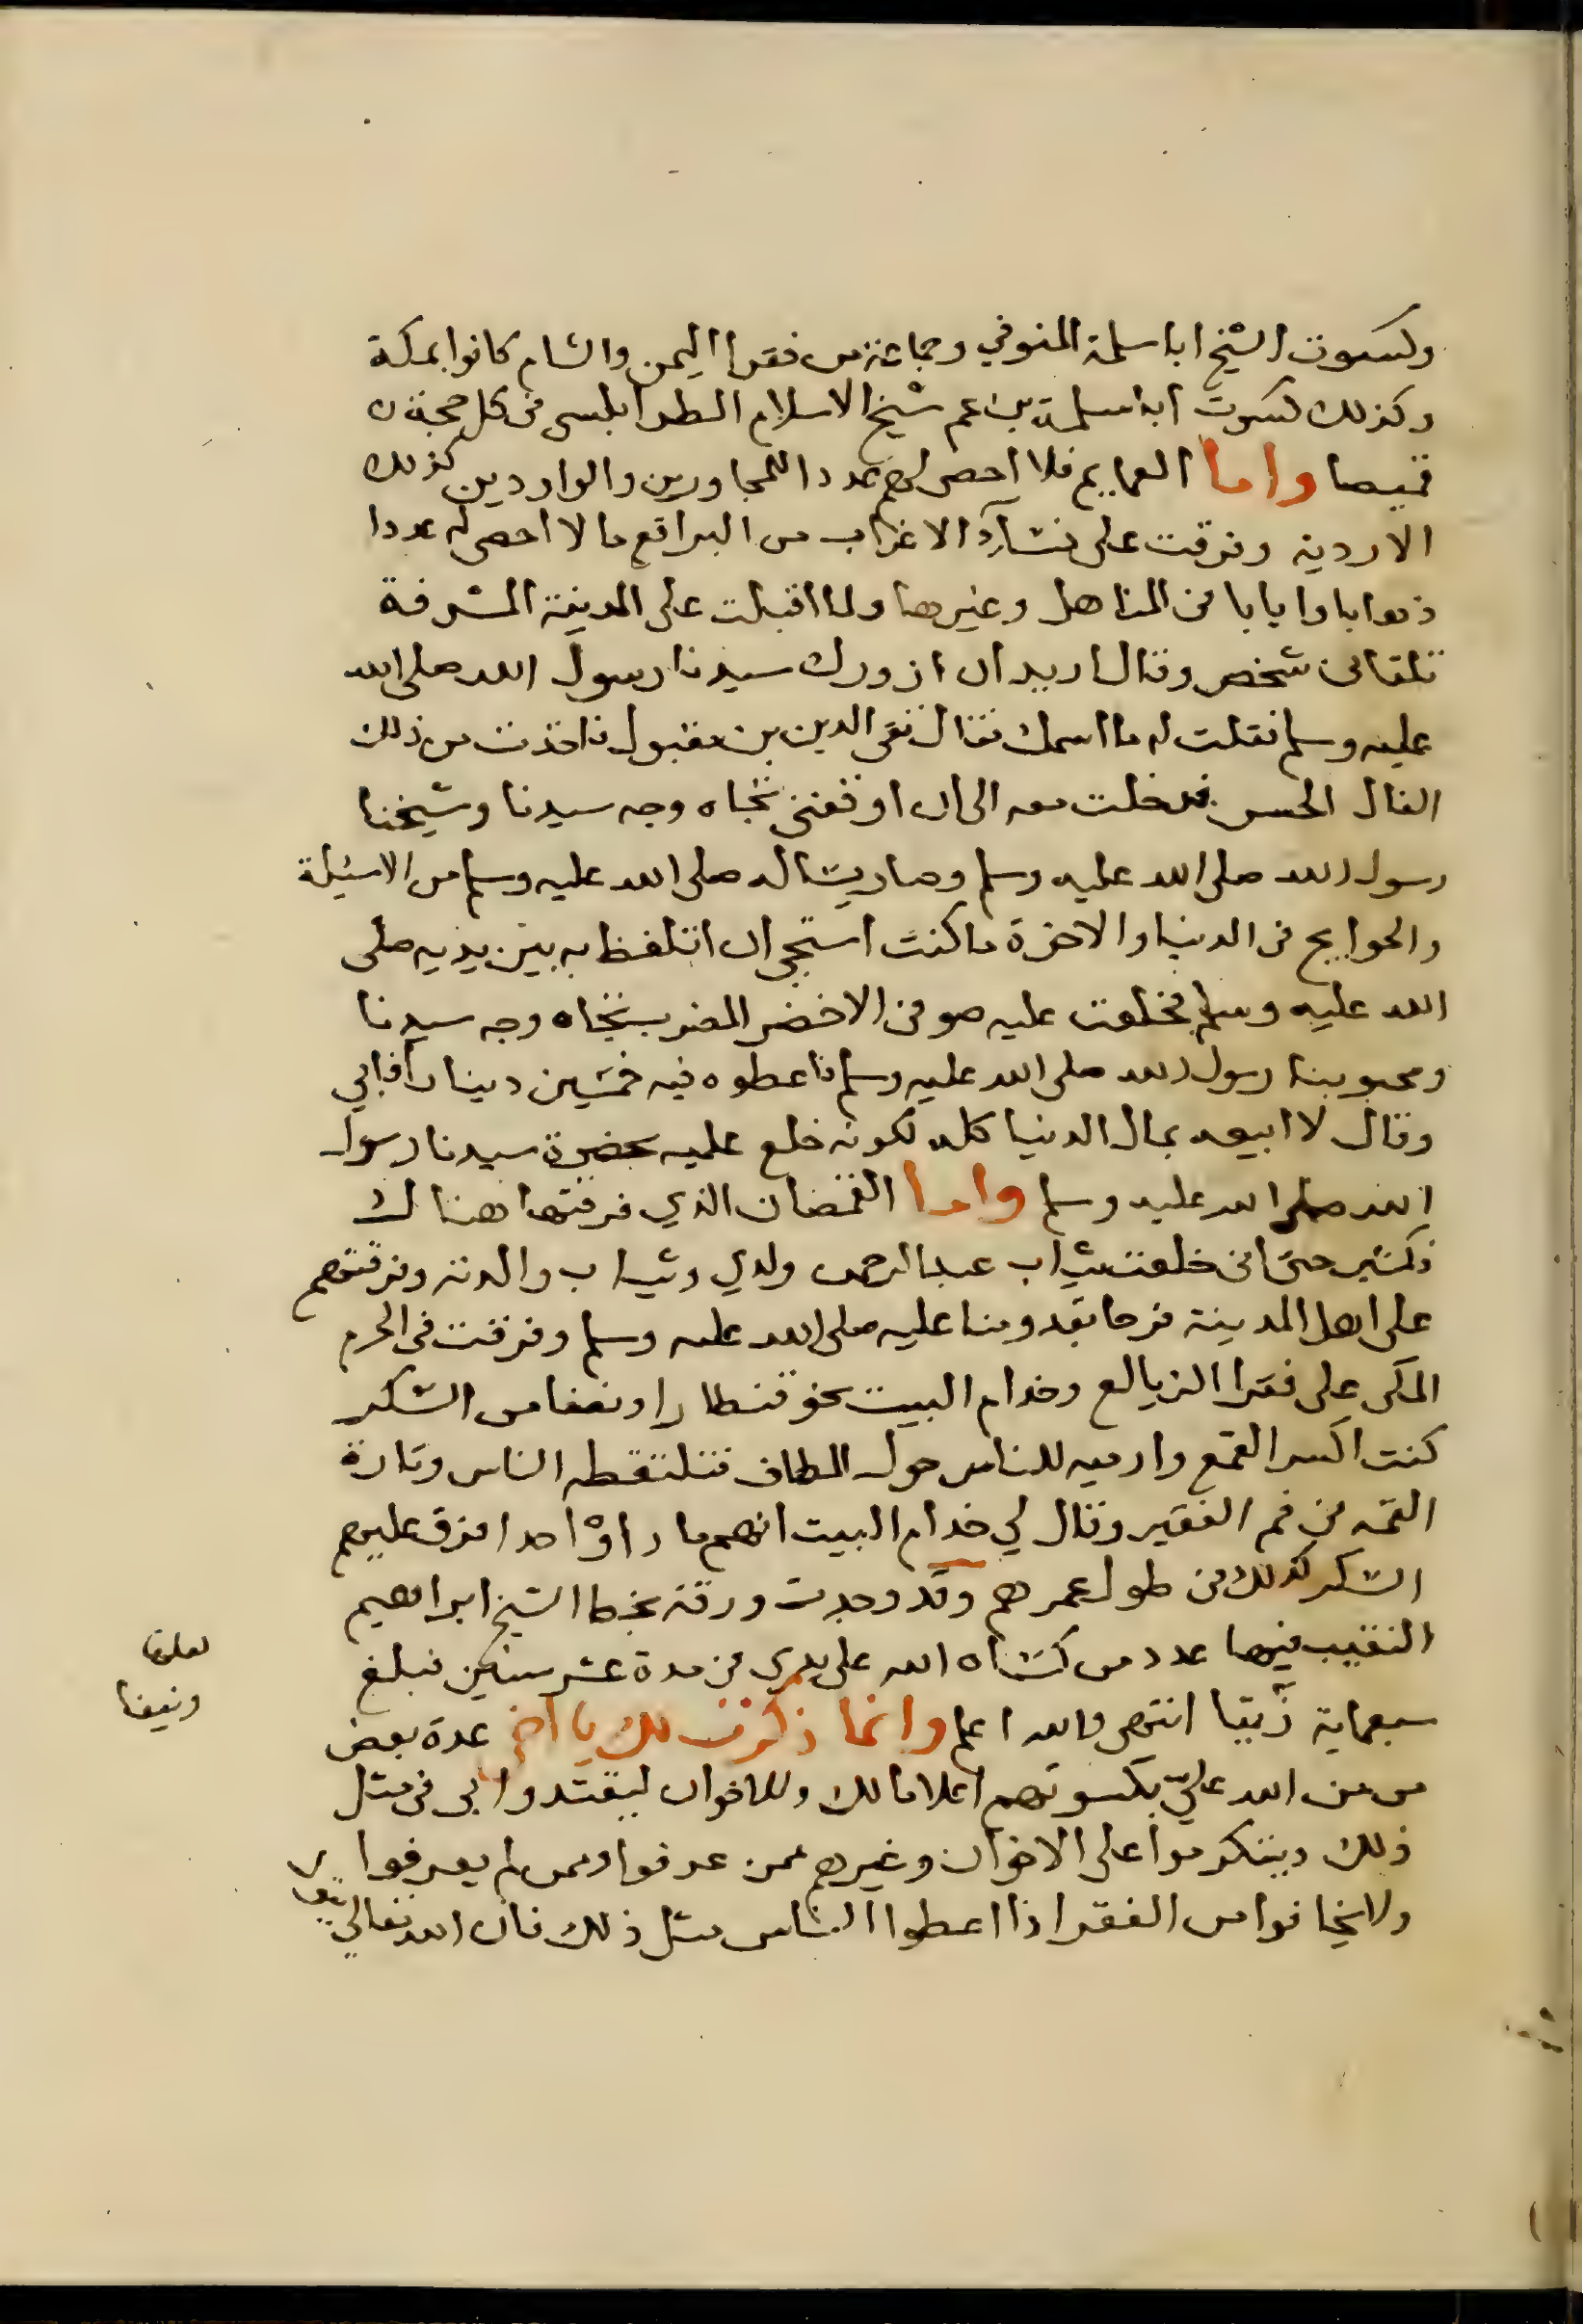 وكسوت الشيخ ابا سلمة المنوفي وجماعة من فقرا اليمن والشام كانوا بمكة
وكذلك كسوت ابا سلمة بن عم شيخ الاسلام الطرابلسي في كل حجة
قميصا واما العمايم فلا احصي لهم عددا للمجاورين والواردين كذلك
الاردية وفرقت على نساء الاعراب من البراقع ما لا احصي له عددا
ذهابا وايابا في المناهل وغيرها ولما اقبلت على المدينة المشرفة
تلقاني شخص وقال اريد ان ازورك سيدنا رسول الله صلى الله
عليه وسلم فقلت له ما اسمك فقال تقي الدين بن مقبول فاخذت من ذلك
الفال الحسن فدخلت معه الى ان اوقفني تجاه وجه سيدنا وشيخنا
رسول الله صلى الله عليه وسلم وصار يساله صلى الله عليه وسلم من الاسئلة
والحوايج في الدنيا والاخرة ما كنت استجي ان اتلفظ به بين يديه صلى
الله عليه وسلم فخلعت عليه صوفي الاخضر المضرب تجاه وجه سيدنا
ومحبوبنا رسول الله صلى الله عليه وسلم فاعطوه فيه خمسين دينارا فابي
وقال لا ابيعه بمال الدنيا كله لكونه خلع عليه بحضرة سيدنا رسول
الله صلى الله عليه وسلم واما القمصان الذي فرقتها هناك
فكثير حتى اني خلعت ثياب عبد الرحمن ولدي وثياب والدته وفرقتهم
على اهل المدينة فرحا بقدومنا عليه صلى الله عليه وسلم وفرقت في الحرم
المكي على فقرا الزيالع وخدام البيت نحو قنطارا ونصفا من السكر
كنت اكسر القمع وارميه للناس حول المطاف فتلتقطه الناس وتارة
القمه في فم الفقير وقال لي خدام البيت انهم ما راوا احدا فرق عليهم
السكر كذلك في طول عمرهم وقد وجدت ورقة بخط الشيخ ابراهيم
النقيب فيها عدد من كساه الله على يدي في مدة عشر سنين فبلغ
سبعماية انتهى والله اعلم وانما ذكرت لك يا اخي عدة بعض
من من الله علي بكسوتهم اعلاما لك وللاخوان ليقتدوا بي في مثل
ذلك ويتكرموا على الاخوان وغيرهم ممن عرفوا وممن لم يعرفوا
ولا يخافوا من الفقر اذا اعطوا الناس مثل ذلك فان الله تعالى
لعلها
ونيفا